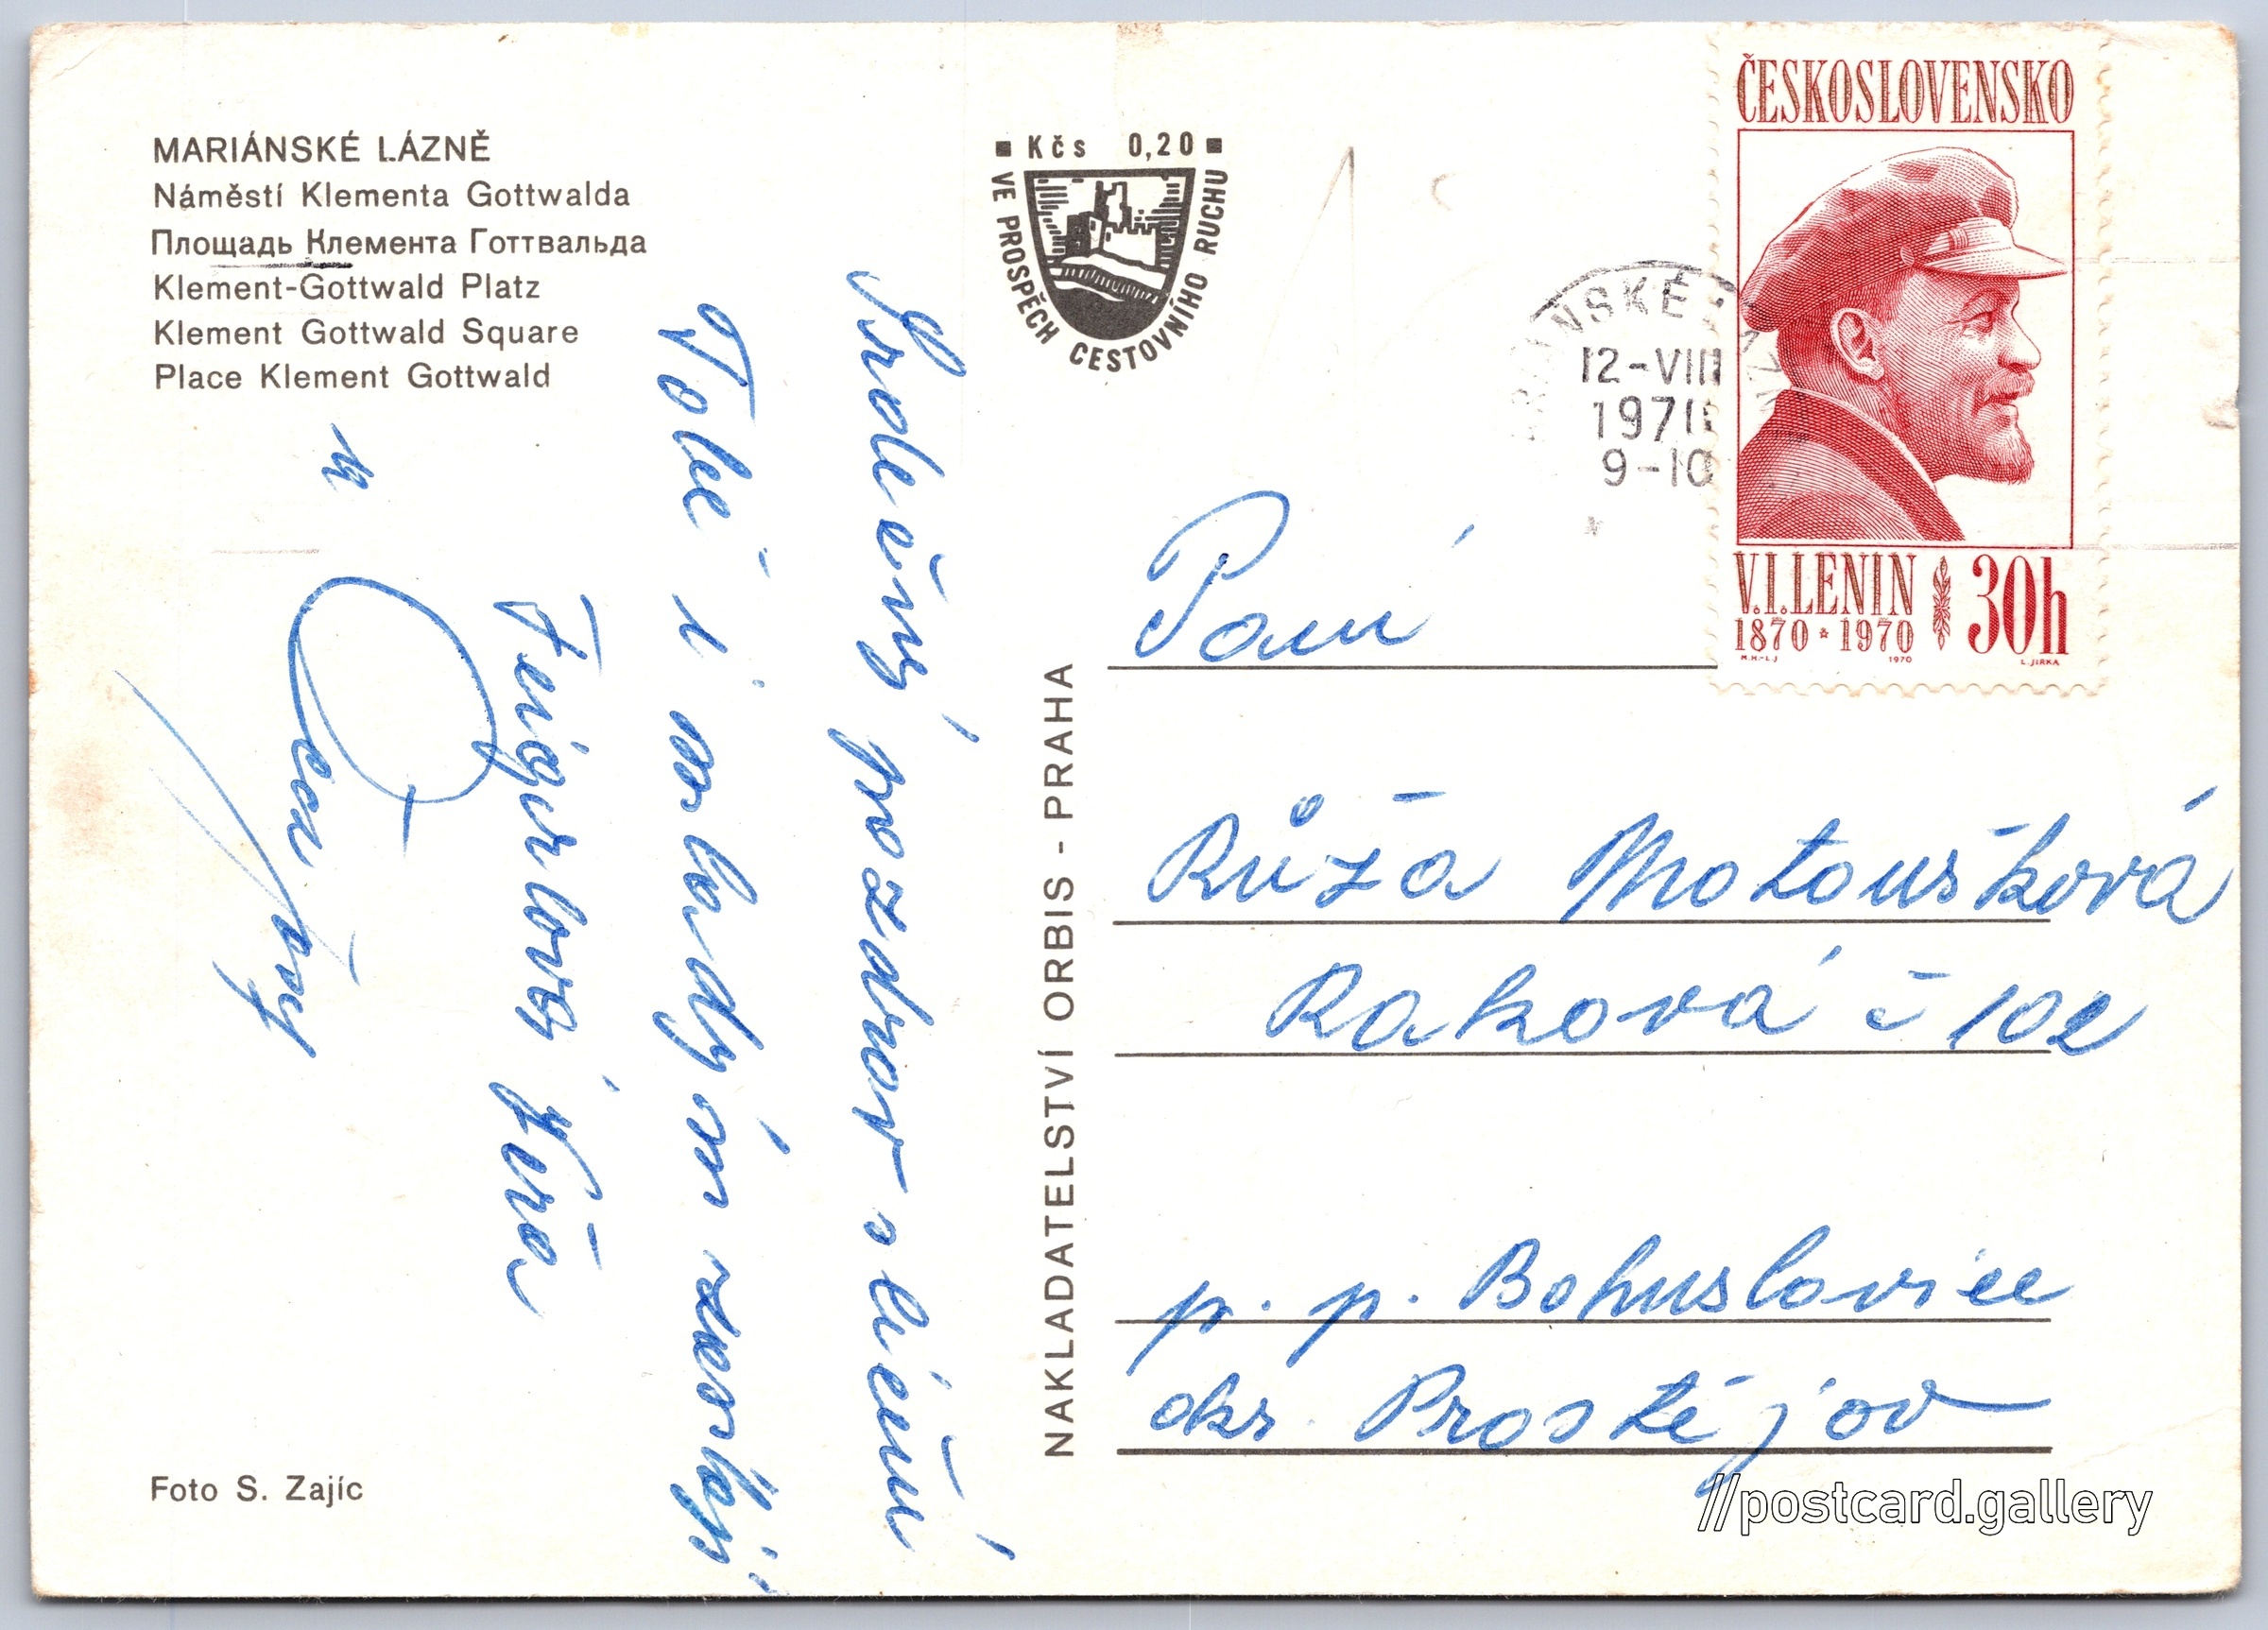 MARIÁNSKÉ LÁZNĚ
Náměstí Klementa Gottwalda
Площадь Клемента Готтвальда
Klement-Gottwald Platz
Klement Gottwald Square
Place Klement Gottwald
Kčs 0,20
VE PROSPĚCH CESTOVNÍHO RUCHU
Srdečný pozdrav s léčení
Tobě i mladým zasílají
Feigerlová Věra
a
NAKLADATELSTVÍ ORBIS - PRAHA
MARIÁNSKÉ LÁZNĚ
12-VIII
1971
9-10
ČESKOSLOVENSKO
V.I.LENIN 30h
1870 * 1970
1970
L. JIRKA
Paní
Růža Matoušková
Raková č 102
p. p. Bohuslovice
okr. Prostějov
Foto S. Zajíc
//postcard.gallery